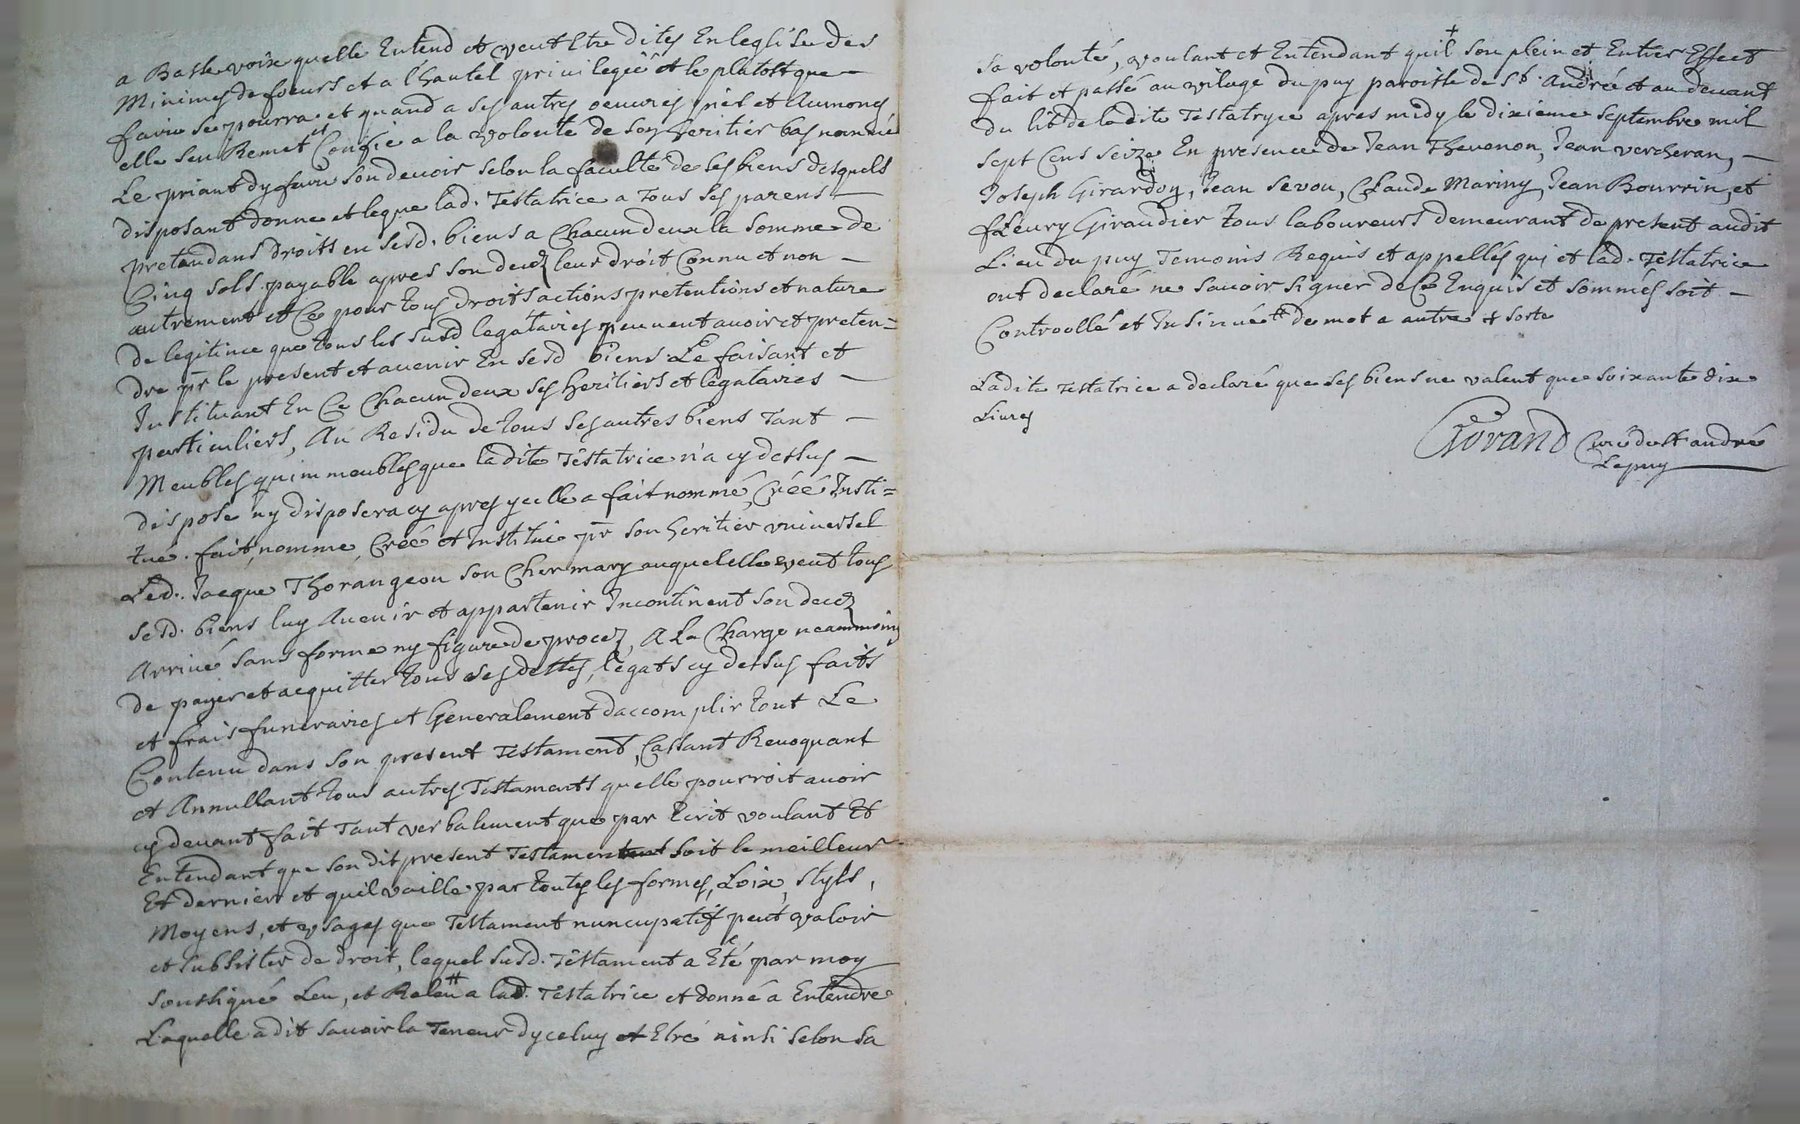 a Basse voix quelle Entend et veut Etre dites En leglise des
Minimes de foeurs et a l'hautel priuilegiée et le platost que
faire se pourra et quand a ses autres oeuvres piél et Aumones
elle seu Remet et Confie a la volonté de son heritier bas nommé
Le priant dy faire son devoir selon la faculté de ses biens desquels
disposant donne et legue lad. Testatrice a tous ses parens
pretendans droits en sesd. biens a Chacun deux la somme de
Cinq sols payable apres son decez leur droit Connu et non
autrement et Ce pour tous droits actions pretentions et nature
de legitime que tous les susd legataires peuuent auoir et preten=
dre pr le present et auenir En sesd biens Le faisant et
Instituant En Ce Chacun deux ses heritiers et légataires
particuliers, Au Residu de tous ses autres biens Tant
Meubles qu'immeubles que ladite Testatrice n'a cy dessus
dispose ny disposera cy apres ycelle a fait nommé, Créé Insti=
tué. fait, nomme, Crée et Institue pr son heritier vniuersel
Led. Jacque Thorangeon son Cher mary auquel elle veut tous
sesd. biens luy Auenir et appartenir Incontinent son decez
Arriué sans forme ny figure de procez, A La Charge neammoins
de payer et acquitter tous ses dettes, légats cy dessus faits
et frais funeraires et Generalement daccomplir tout Le
Contenu dans son present Testament, Cassant Reuoquant
et Annullant tous autres Testaments quelle pourroit auoir
cy deuant fait Tant verbalement que par Ecrit voulant Et
Entendant que son dit present Testament soit le meilleur
Et dernier et quil vaille par toutes les formes, Loix, styls,
Moyens, et vsages que Testament nuncupatif peut valoir
et subsister de droit, lequel susd. Testament a Eté par moy
soussigné Leu, et Releu a lad. Testatrice et donné a Entendre
Laquelle a dit sauoir la Teneur dyceluy et Etre ainsi selon sa
sa volonté, voulant et Entendant quil son plein et Entier Effect
fait et passé au vilage du puy paroisse de St. André et au deuant
du lit de ladite Testatryce apres midy le dixieme septembre mil
sept Cens seize En presence de Jean Thevenon, Jean vercheran,
Joseph Girardon, Jean sevou, Claude Mariny, Jean Bourrin, et
fleury Giraudier tous laboureurs demeurant de present audit
Lieu du puy Temoins Requis et appellés qui et lad. Testatrice
ont declaré ne sauoir signer de Ce Enquis et sommés soit
Controollé et Insinué de mot a autre
Ladite Testatrice a declaré que ses biens ne valent que soixante dix
Liures
Curé de St andré
Le puy